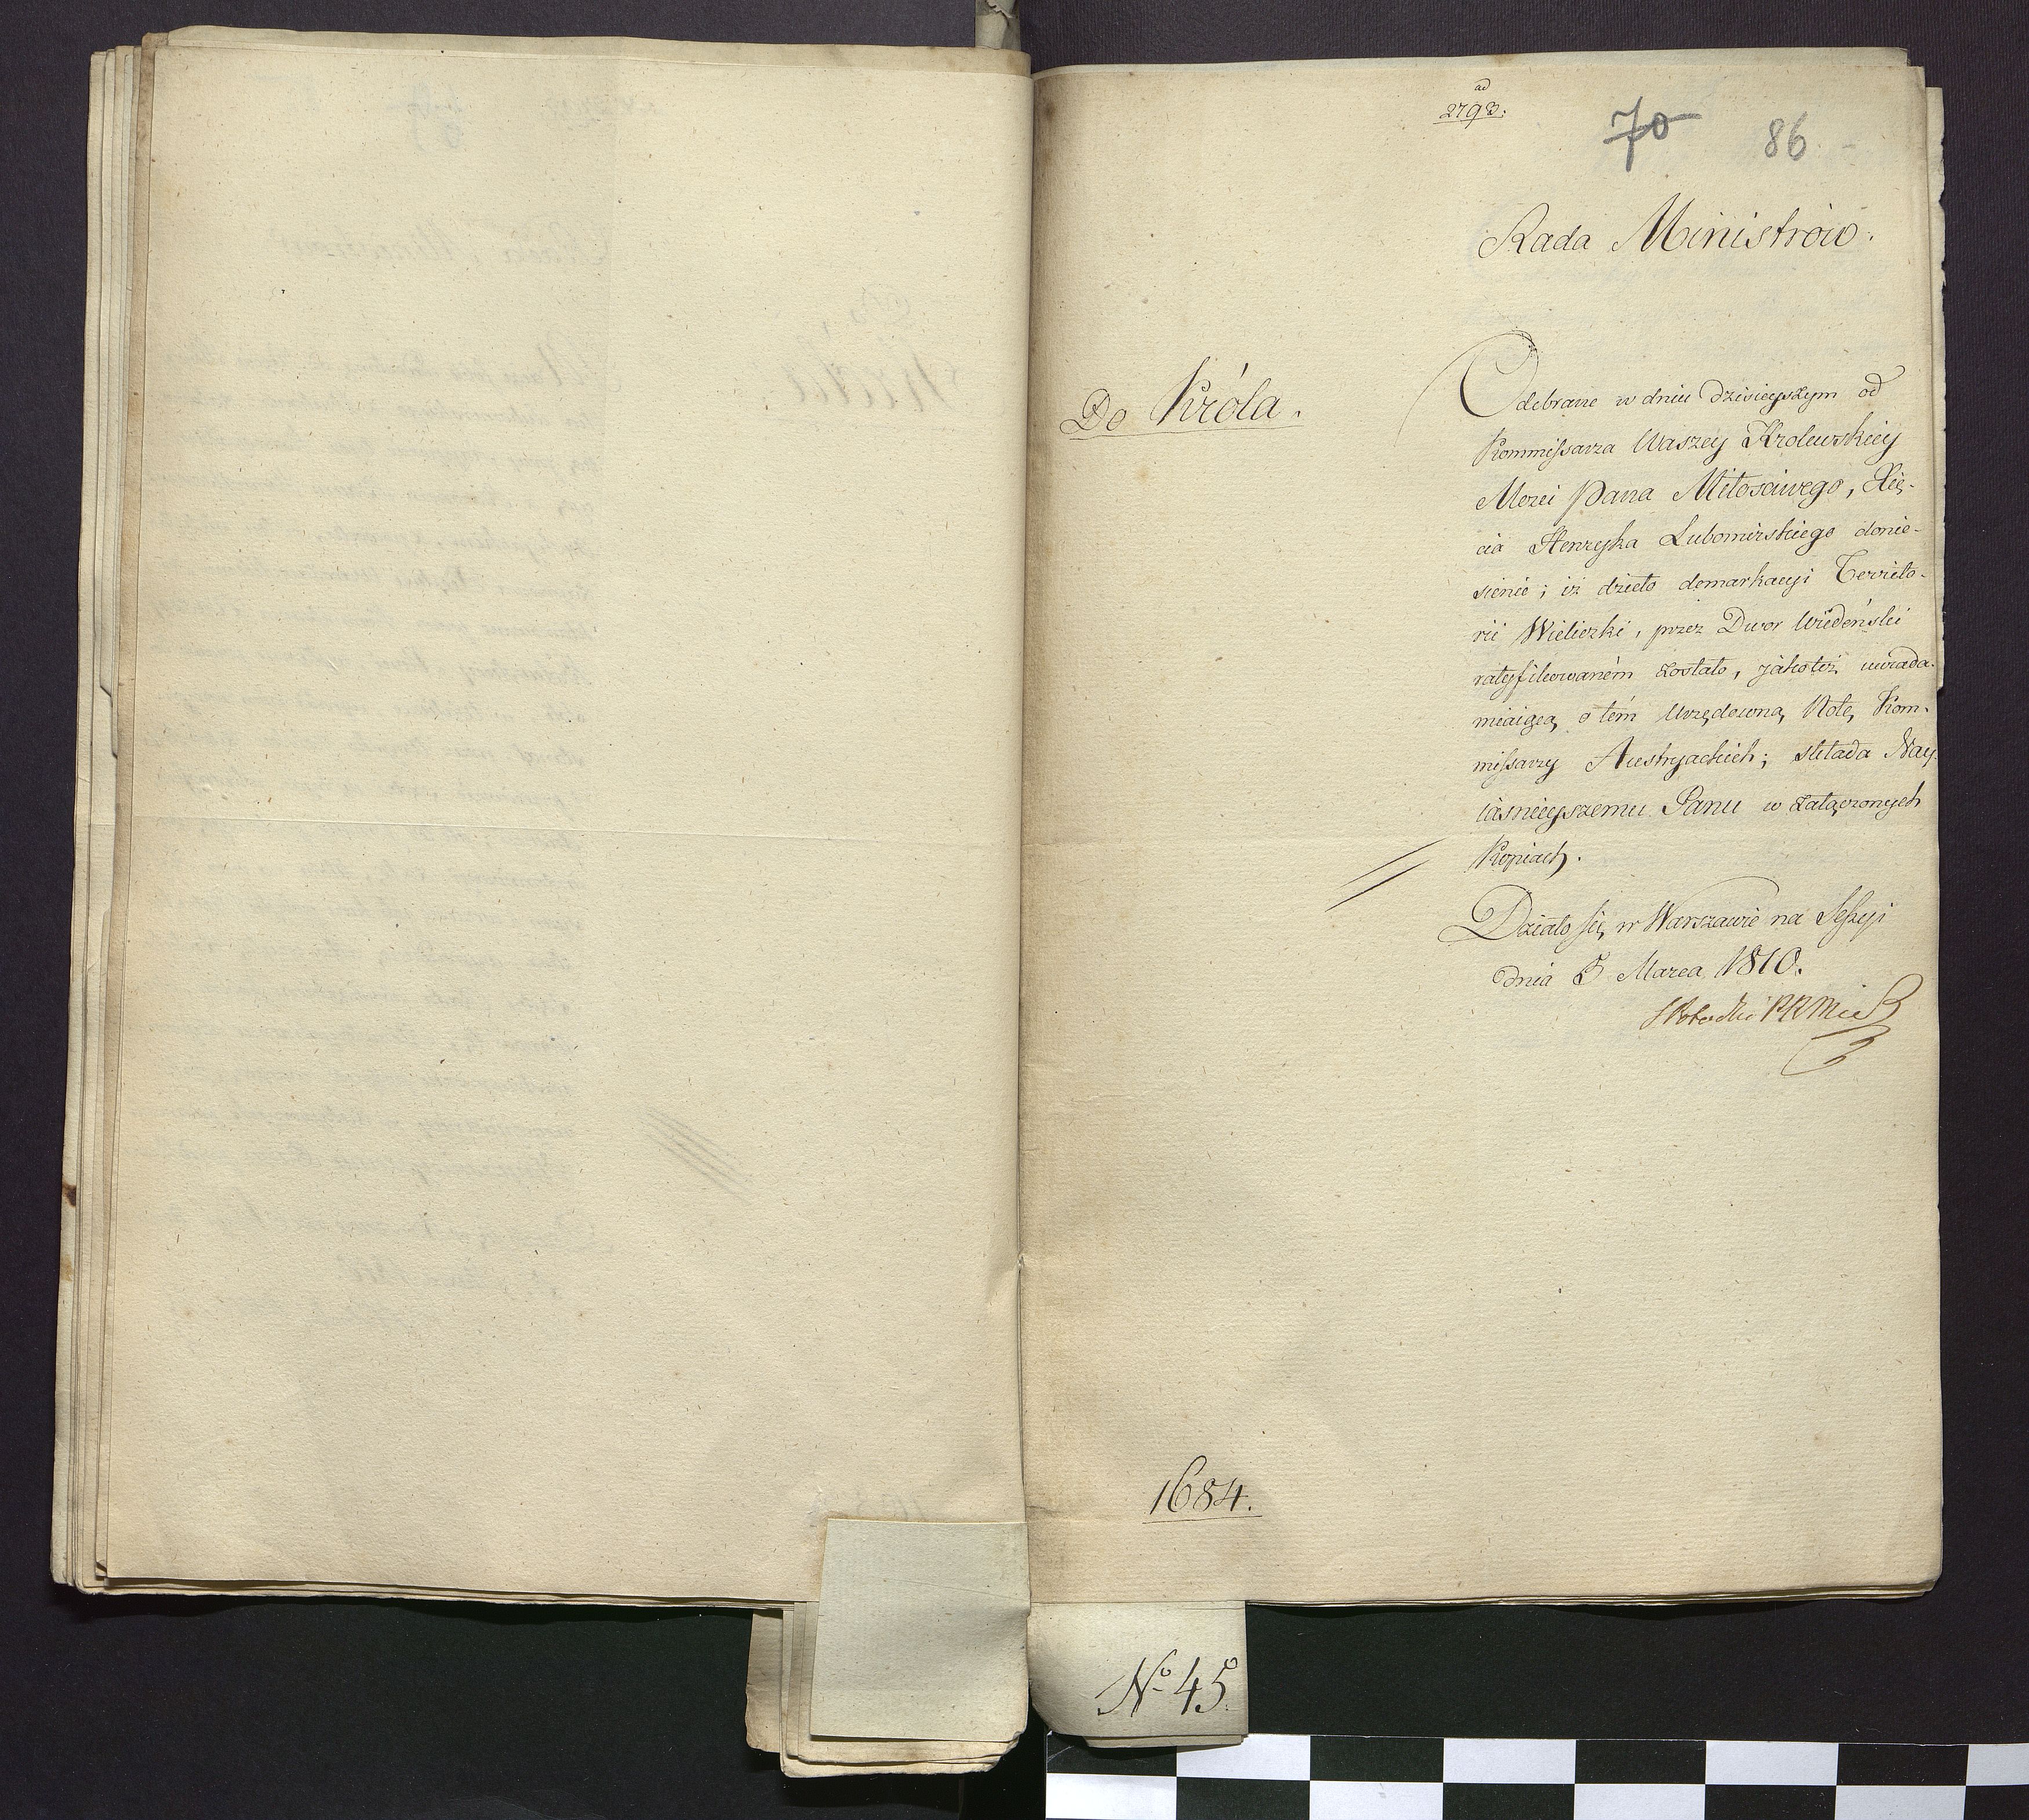 ad
2793.
70 86
Rada Ministrów.
Do Króla.
Odebrane w dniu dzisieyszym od
Kommissarza Waszey Krolewskiey
Mozci Pana Miłosciwego, Xię-
cia Henryka Lubomirskiego donie-
sienie; iż dzieło demarkacyi Territo-
rii Wieliczki, przez Dwor Wiedeński
ratyfikowaném zostało, jakoteż uwiada-
miaiącą o tém Urzędowną Notę Kom-
missarzy Austryackich; składa Nay-
iasnieyszemu Panu w załączonych
Kopiach.
Działo się w Warszawie na Sessyi
dnia 5 Marca 1810.
1684.
No 45.